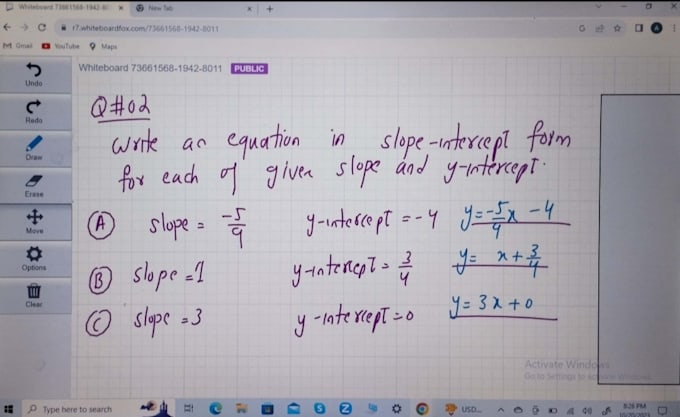 Whiteboard 73661568-1942-80
New Tab
r7.whiteboardfox.com/73661568-1942-8011
Gmail
YouTube
Maps
Whiteboard 73661568-1942-8011 PUBLIC
Undo
Redo
Draw
Erase
Move
Options
Clear
Q#02
Write an equation in slope-intercept form
for each of given slope and y-intercept.
A slope = -5/9 y-intercept = -4 y = -5/9 x - 4
B slope = 1 y-intercept = 3/4 y = x + 3/4
C slope = 3 y-intercept = 0 y = 3x + 0
Activate Windows
Go to Settings to activate Windows.
Type here to search
USD...
8:26 PM